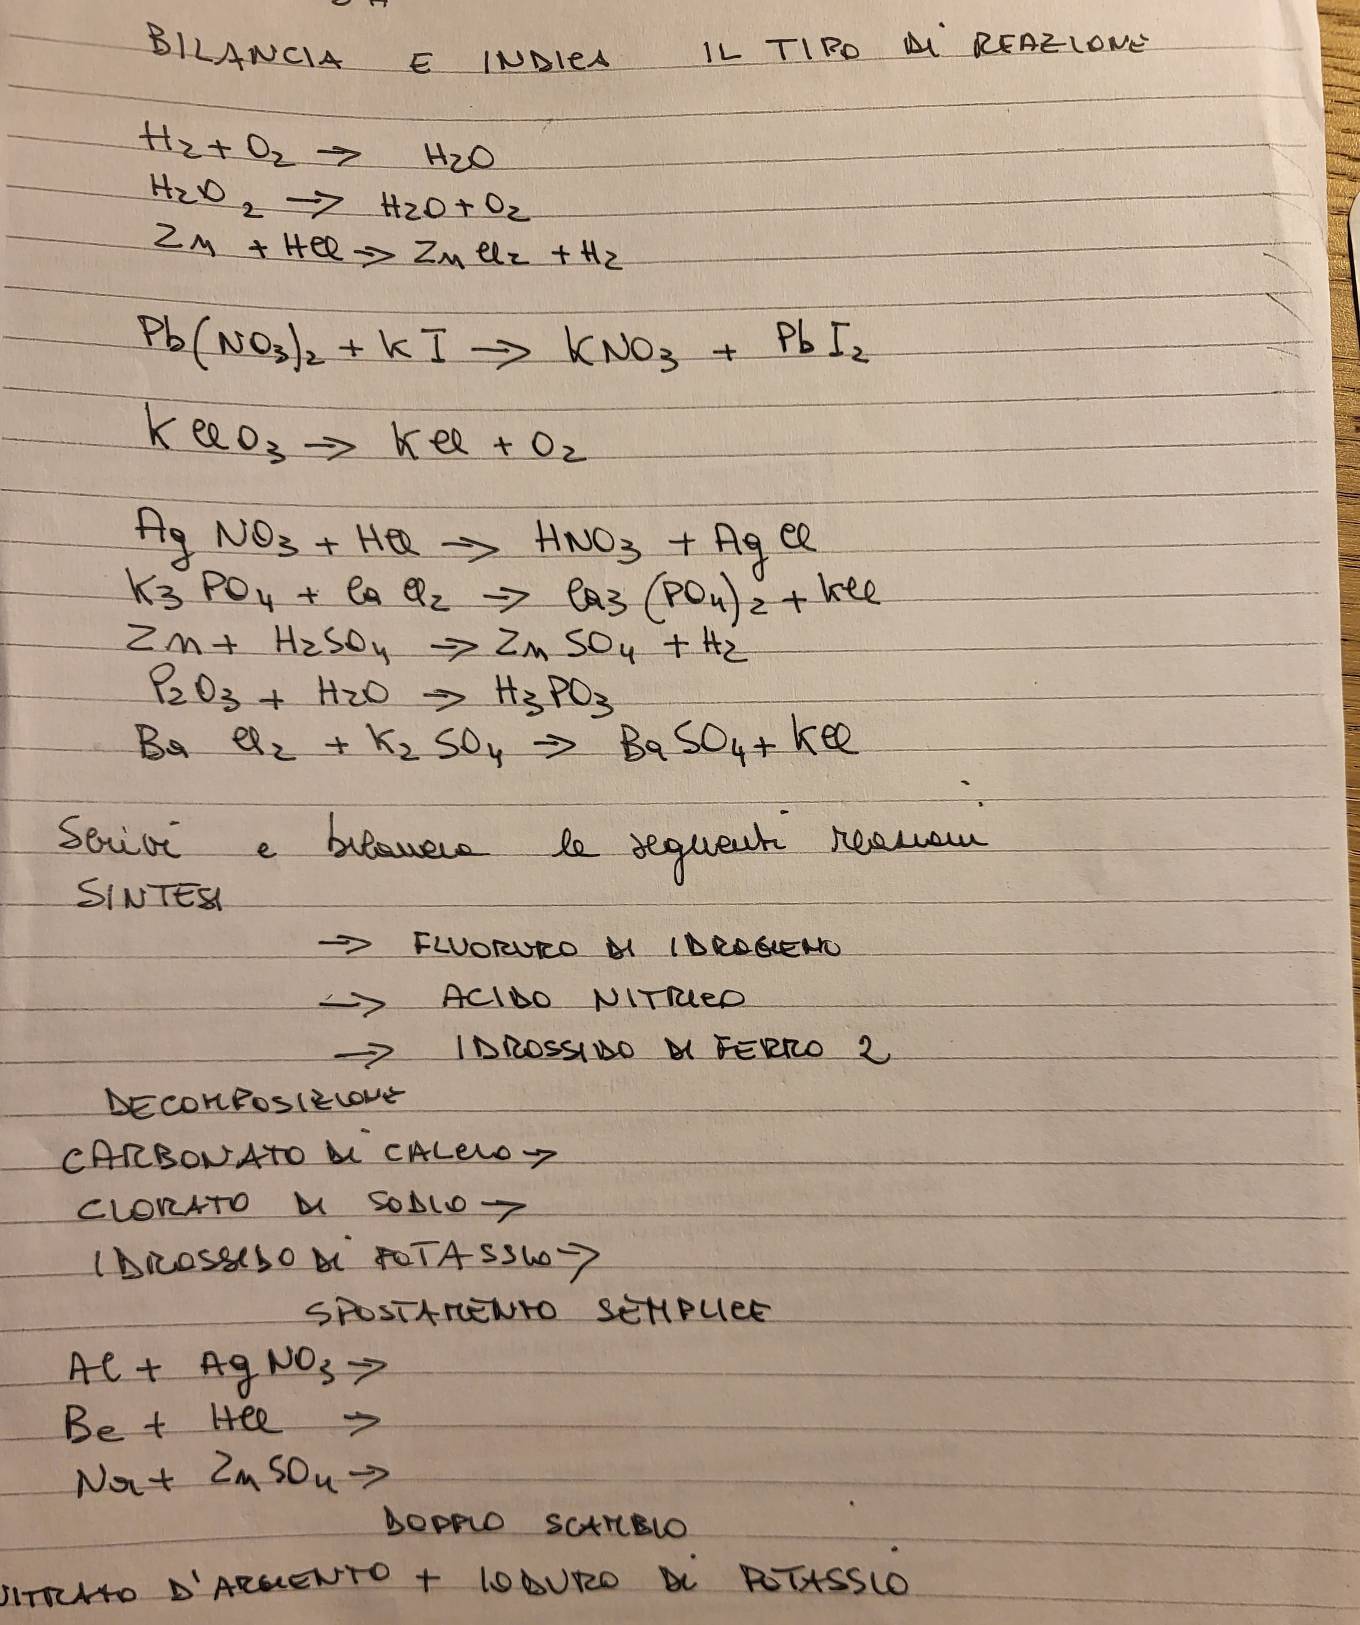 BILANCIA E INDICA IL TIPO DI REAZIONE
H2 + O2 → H2O
H2O2 → H2O + O2
Zn + HCl → ZnCl2 + H2
Pb(NO3)2 + KI → KNO3 + PbI2
KClO3 → KCl + O2
AgNO3 + HCl → HNO3 + AgCl
K3PO4 + CaCl2 → Ca3(PO4)2 + KCl
Zn + H2SO4 → ZnSO4 + H2
P2O3 + H2O → H3PO3
BaCl2 + K2SO4 → BaSO4 + KCl
Scrivi e bilancia le seguenti reazioni
SINTESI
→ FLUORURO DI IDROGENO
→ ACIDO NITRICO
→ IDROSSIDO DI FERRO 2
DECOMPOSIZIONE
CARBONATO DI CALCIO →
CLORATO DI SODIO →
IDROSSIDO DI POTASSIO →
SPOSTAMENTO SEMPLICE
Al + AgNO3 →
Be + HCl →
Na + ZnSO4 →
DOPPIO SCAMBIO
NITRATO D'ARGENTO + IODURO DI POTASSIO